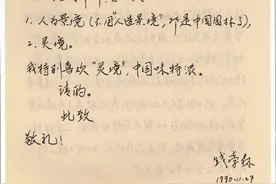 1. 人为景境(不用人造景境, 那是中国园林了),
2. 灵境。
我特别喜欢“灵境”, 中国味特浓。
请酌。
此致
敬礼!
钱学森
1990.11.27